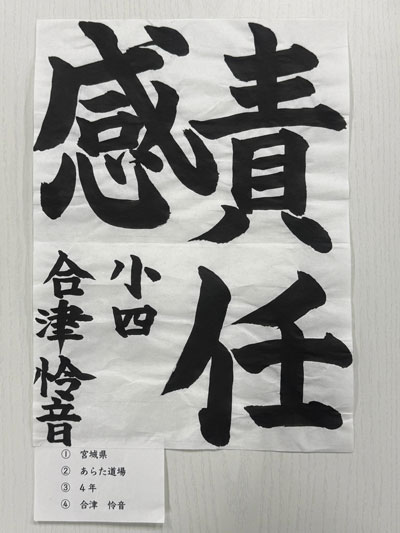 責任
感
小四
合津怜音
① 宮城県
② あらた道場
③ 4年
④ 合津 怜音